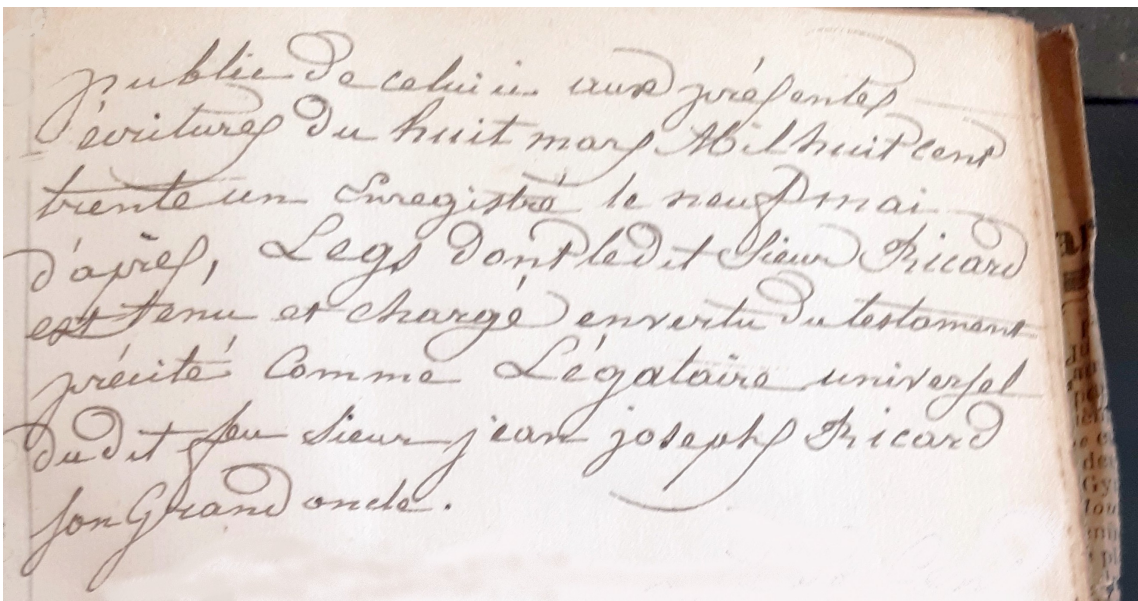 public de celui ci aux présentes
écritures du huit mars Mil huit cent
trente un Enregistré le neuf mai
d'après, Legs dont ledit Sieur Ricard
est tenu et chargé en vertu du testament
précité comme Légataire universel
dudit feu Sieur jean joseph Ricard
son Grand oncle.